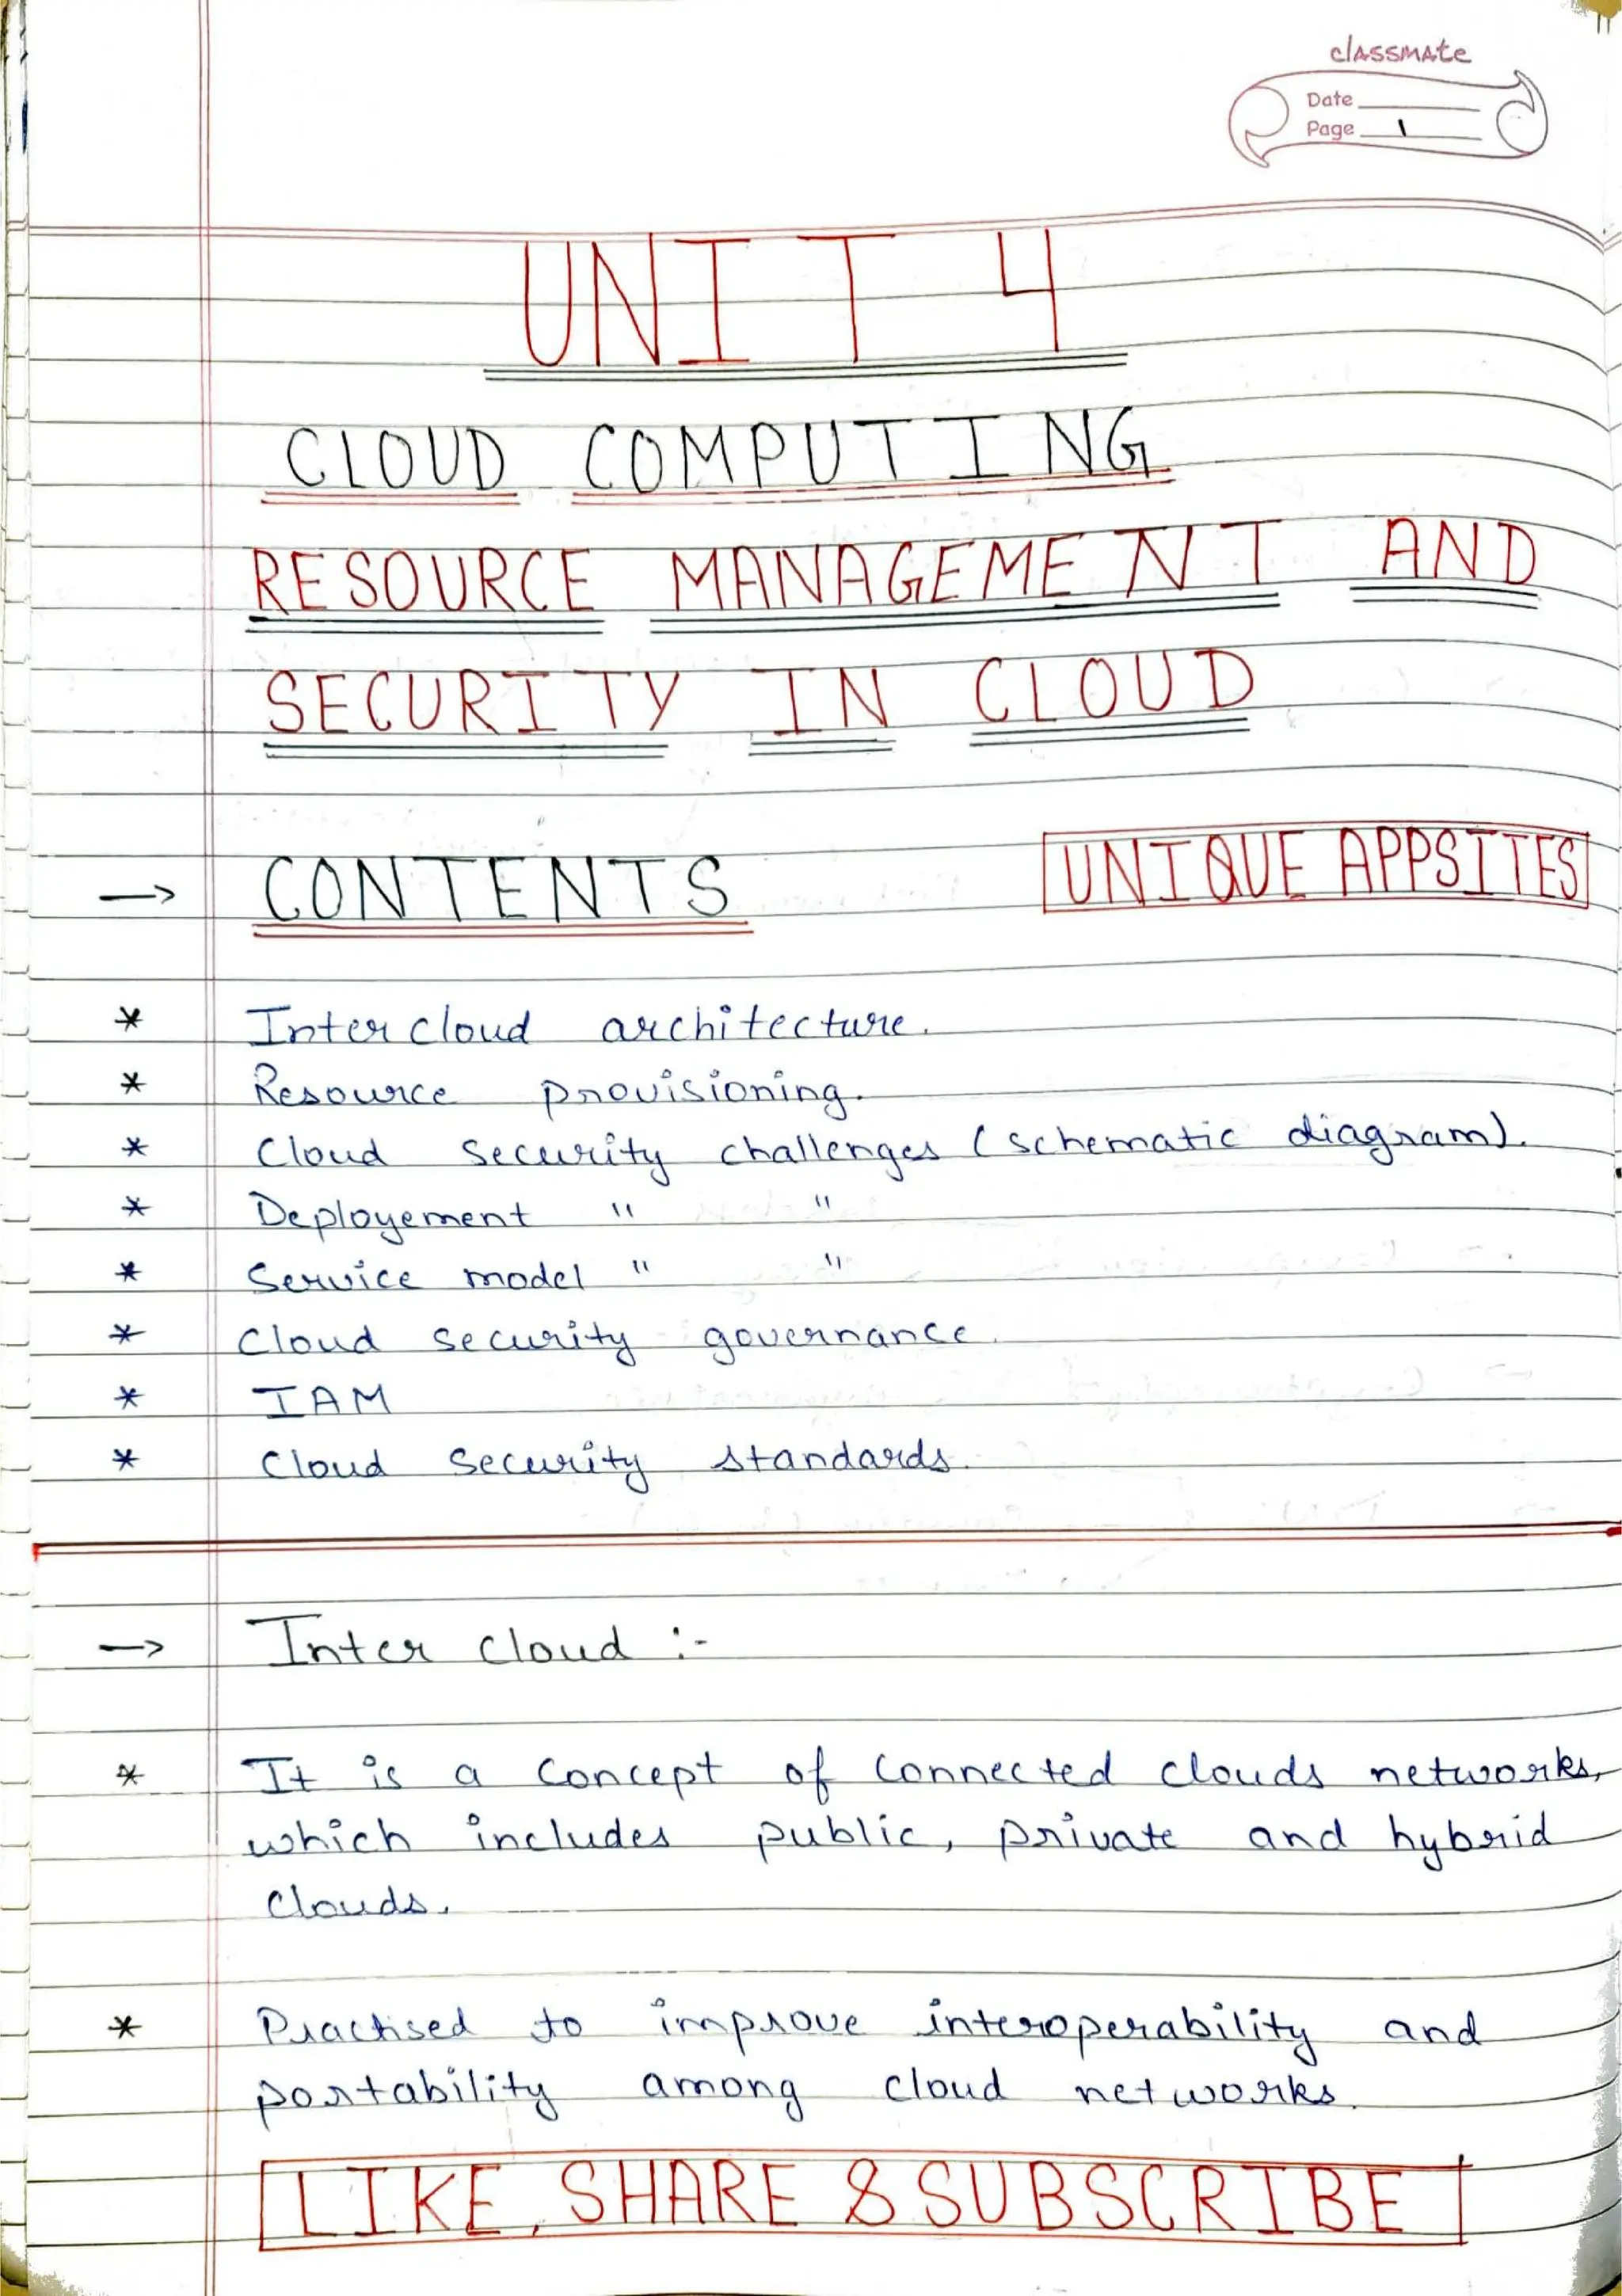 classmate
Date
Page 1
UNIT 4
CLOUD COMPUTING
RESOURCE MANAGEMENT AND
SECURITY IN CLOUD
→ CONTENTS UNIQUE APPSITES
* Inter cloud architecture.
* Resource provisioning.
* Cloud security challenges (schematic diagram).
* Deployement " "
* Service model " "
* Cloud security governance.
* IAM
* Cloud security standards.
→ Inter cloud :-
* It is a concept of connected clouds networks,
which includes public, private and hybrid
clouds.
* Practised to improve interoperability and
portability among cloud networks.
LIKE, SHARE & SUBSCRIBE